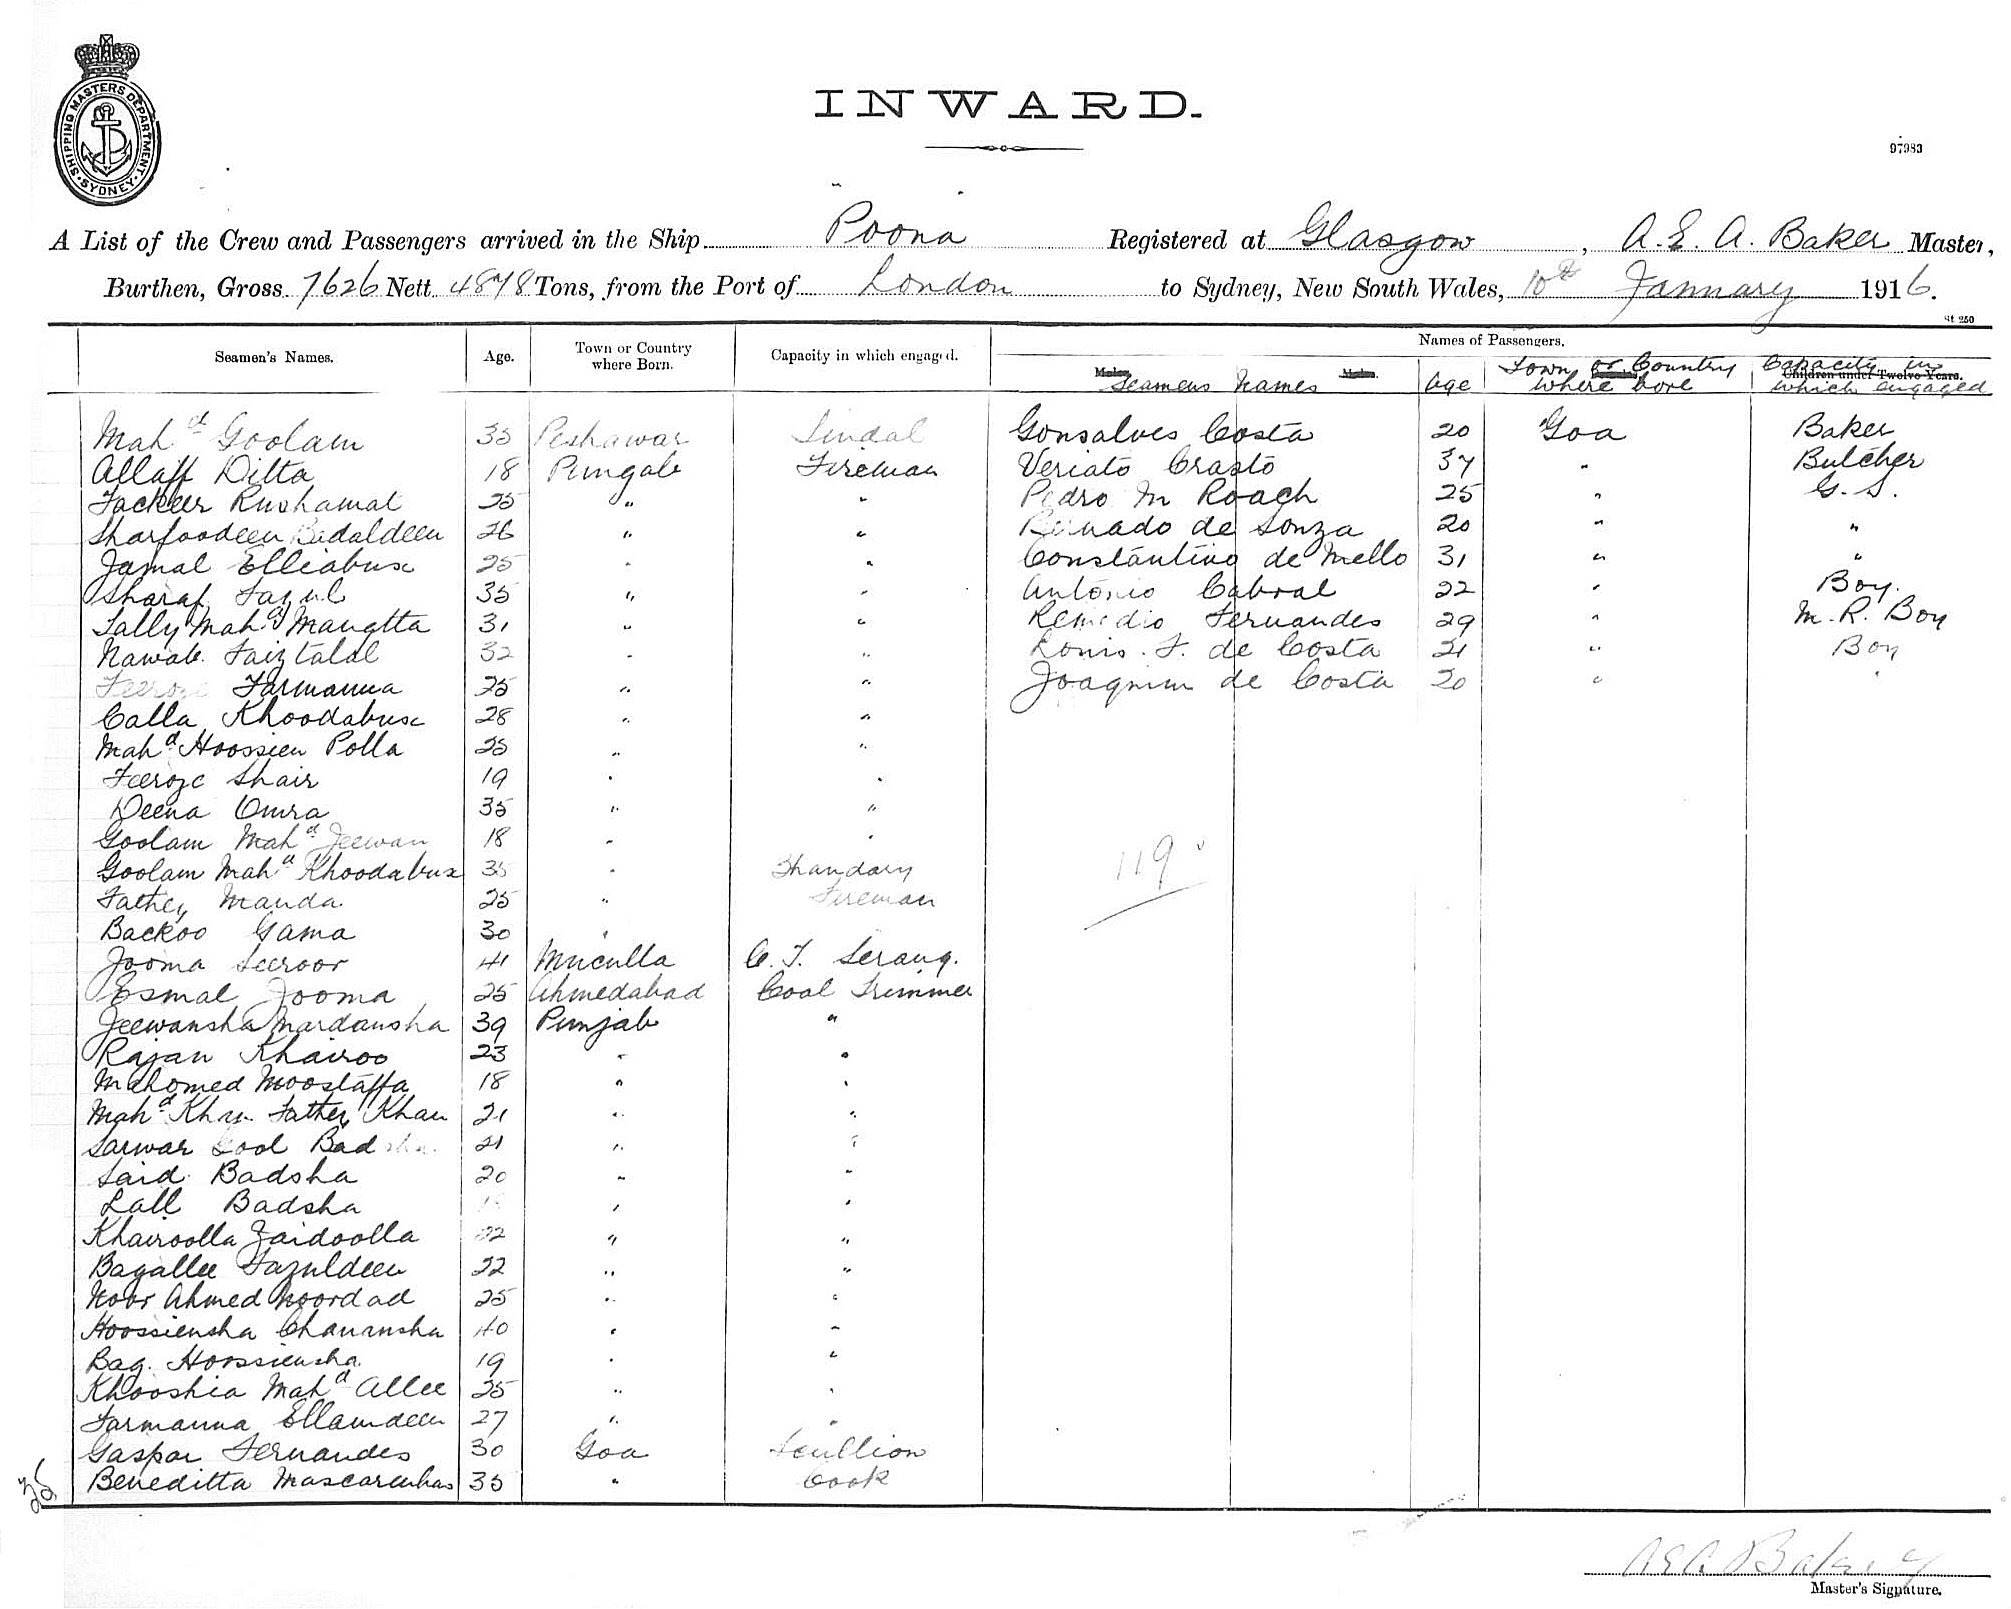 SHIPPING MASTERS DEPARTMENT. SYDNEY.
INWARD.
97983
A List of the Crew and Passengers arrived in the Ship Poona Registered at Glasgow, A. E. A. Baker Master,
Burthen, Gross 7626 Nett 4878 Tons, from the Port of London to Sydney, New South Wales, 10th January 1916.
St 250
Seamen's Names. Age. Town or Country where Born. Capacity in which engaged. Names of Passengers.
Seamens Names Age Town or Country where bore Capacity in which engaged
Children under Twelve Years.
Mahd Goolam 35 Peshawar Tindal Gonsalves Costa 20 Goa Baker
Allaff Ditta 18 Pungab Fireman Veriato Crasto 37 " Butcher
Fackeer Rushamat 25 " " Pedro M Roach 25 " G. S.
Sharfoodeen Badaldeen 26 " " Bernado de Sonza 20 " "
Jamal Elliabux 25 " " Constantino de Mello 31 " "
Sharaf Fazul 35 " " Antonio Cabral 22 " Boy.
Lally Mahd Mangtta 31 " " Remedio Fernandes 29 " M. R. Boy
Nawab Faiztalal 32 " " Louis. F. de Costa 21 " Boy
Feeroze Farmanna 25 " " Joaquim de Costa 20 " "
Calla Khoodabux 28 " "
Mahd Hoossien Polla 25 " "
Feeroze Shair 19 " "
Deena Omra 35 " "
Goolam Mahd Jeewan 18 " "
Goolam Mahd Khoodabux 35 " Bhandary
Fathey Manda 25 " Fireman
Backoo Gama 30 "
119
Jooma Seeroor 41 Muculla C. T. Serang.
Esmal Jooma 25 Ahmedabad Coal Trimmer
Jeewansha Mardansha 39 Punjab "
Rajan Khairoo 23 " "
Mahomed Moostaffa 18 " "
Mahd Khan Fathey Khan 21 " "
Sarwar Gool Badsha 21 " "
Said Badsha 20 " "
Lall Badsha " "
Khairoolla Zaidoolla 22 " "
Bagallee Fazuldeen 22 " "
Noor Ahmed Noordad 25 " "
Hoossiensha Chanansha 40 " "
Bag. Hoossiensha 19 " "
Khooshia Mahd Allee 25 " "
Farmanna Ellamdeen 27 " "
Gaspar Fernandes 30 Goa Scullion
Beneditta Mascarenhas 35 " Cook
A E A Baker
Master's Signature.